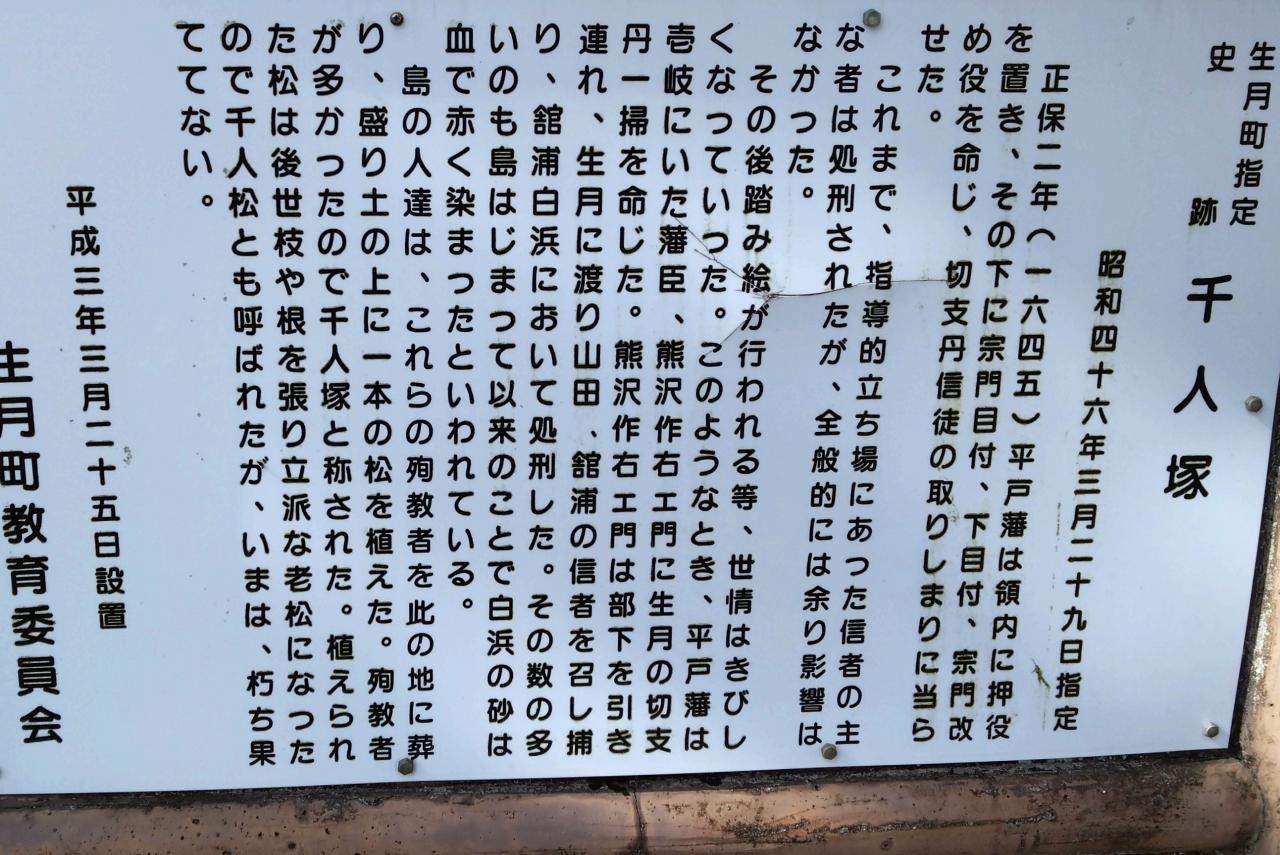 生月町指定
史跡 千人塚
昭和四十六年三月二十九日指定
正保二年（一六四五）平戸藩は領内に押役
を置き、その下に宗門目付、下目付、宗門改
め役を命じ、切支丹信徒の取りしまりに当ら
せた。
これまで、指導的立ち場にあった信者の主
な者は処刑されたが、全般的には余り影響は
なかった。
その後踏み絵が行われる等、世情はきびし
くなっていった。このようなとき、平戸藩は
壱岐にいた藩臣、熊沢作右エ門に生月の切支
丹一掃を命じた。熊沢作右エ門は部下を引き
連れ、生月に渡り山田、舘浦の信者を召し捕
り、舘浦白浜において処刑した。その数の多
いのも島はじまって以来のことで白浜の砂は
血で赤く染まったといわれている。
島の人達は、これらの殉教者を此の地に葬
り、盛り土の上に一本の松を植えた。殉教者
が多かったので千人塚と称された。植えられ
た松は後世枝や根を張り立派な老松になった
ので千人松とも呼ばれたが、いまは、朽ち果
ててない。
平成三年三月二十五日設置
生月町教育委員会